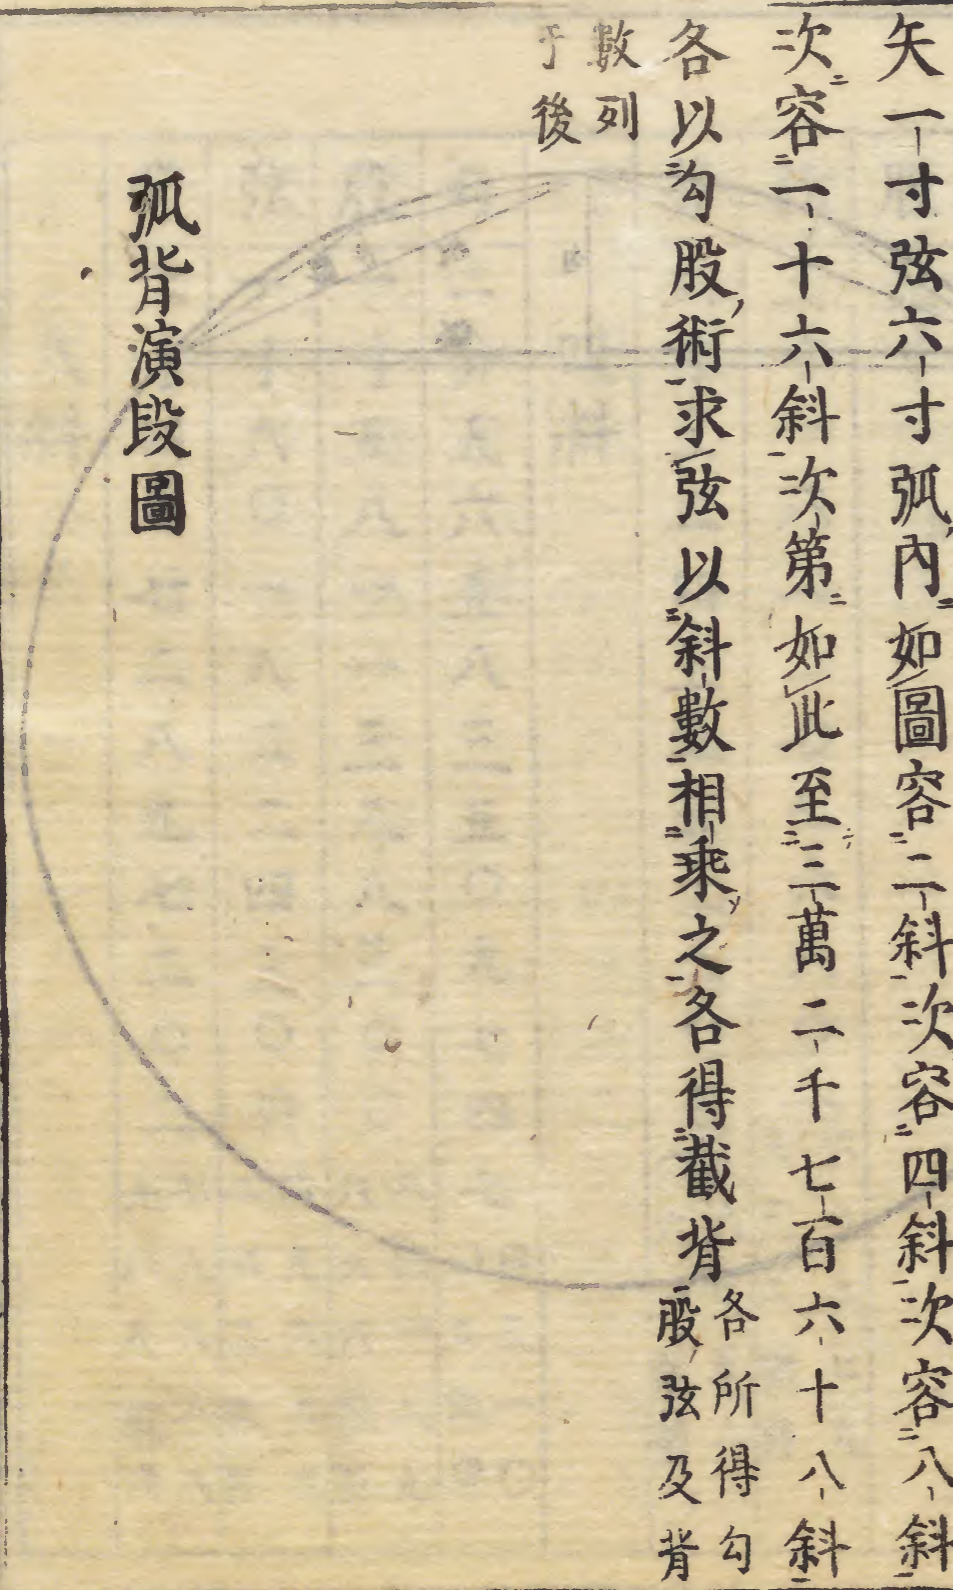 矢一寸弦六寸弧內如圖容二斜次容四斜次容八斜
次容一十六斜次第如此至三萬二千七百六十八斜
各以勾股術求弦以斜數相乘之各得截背
各所得勾
股弦及背
數列
于後
弧背演段圖